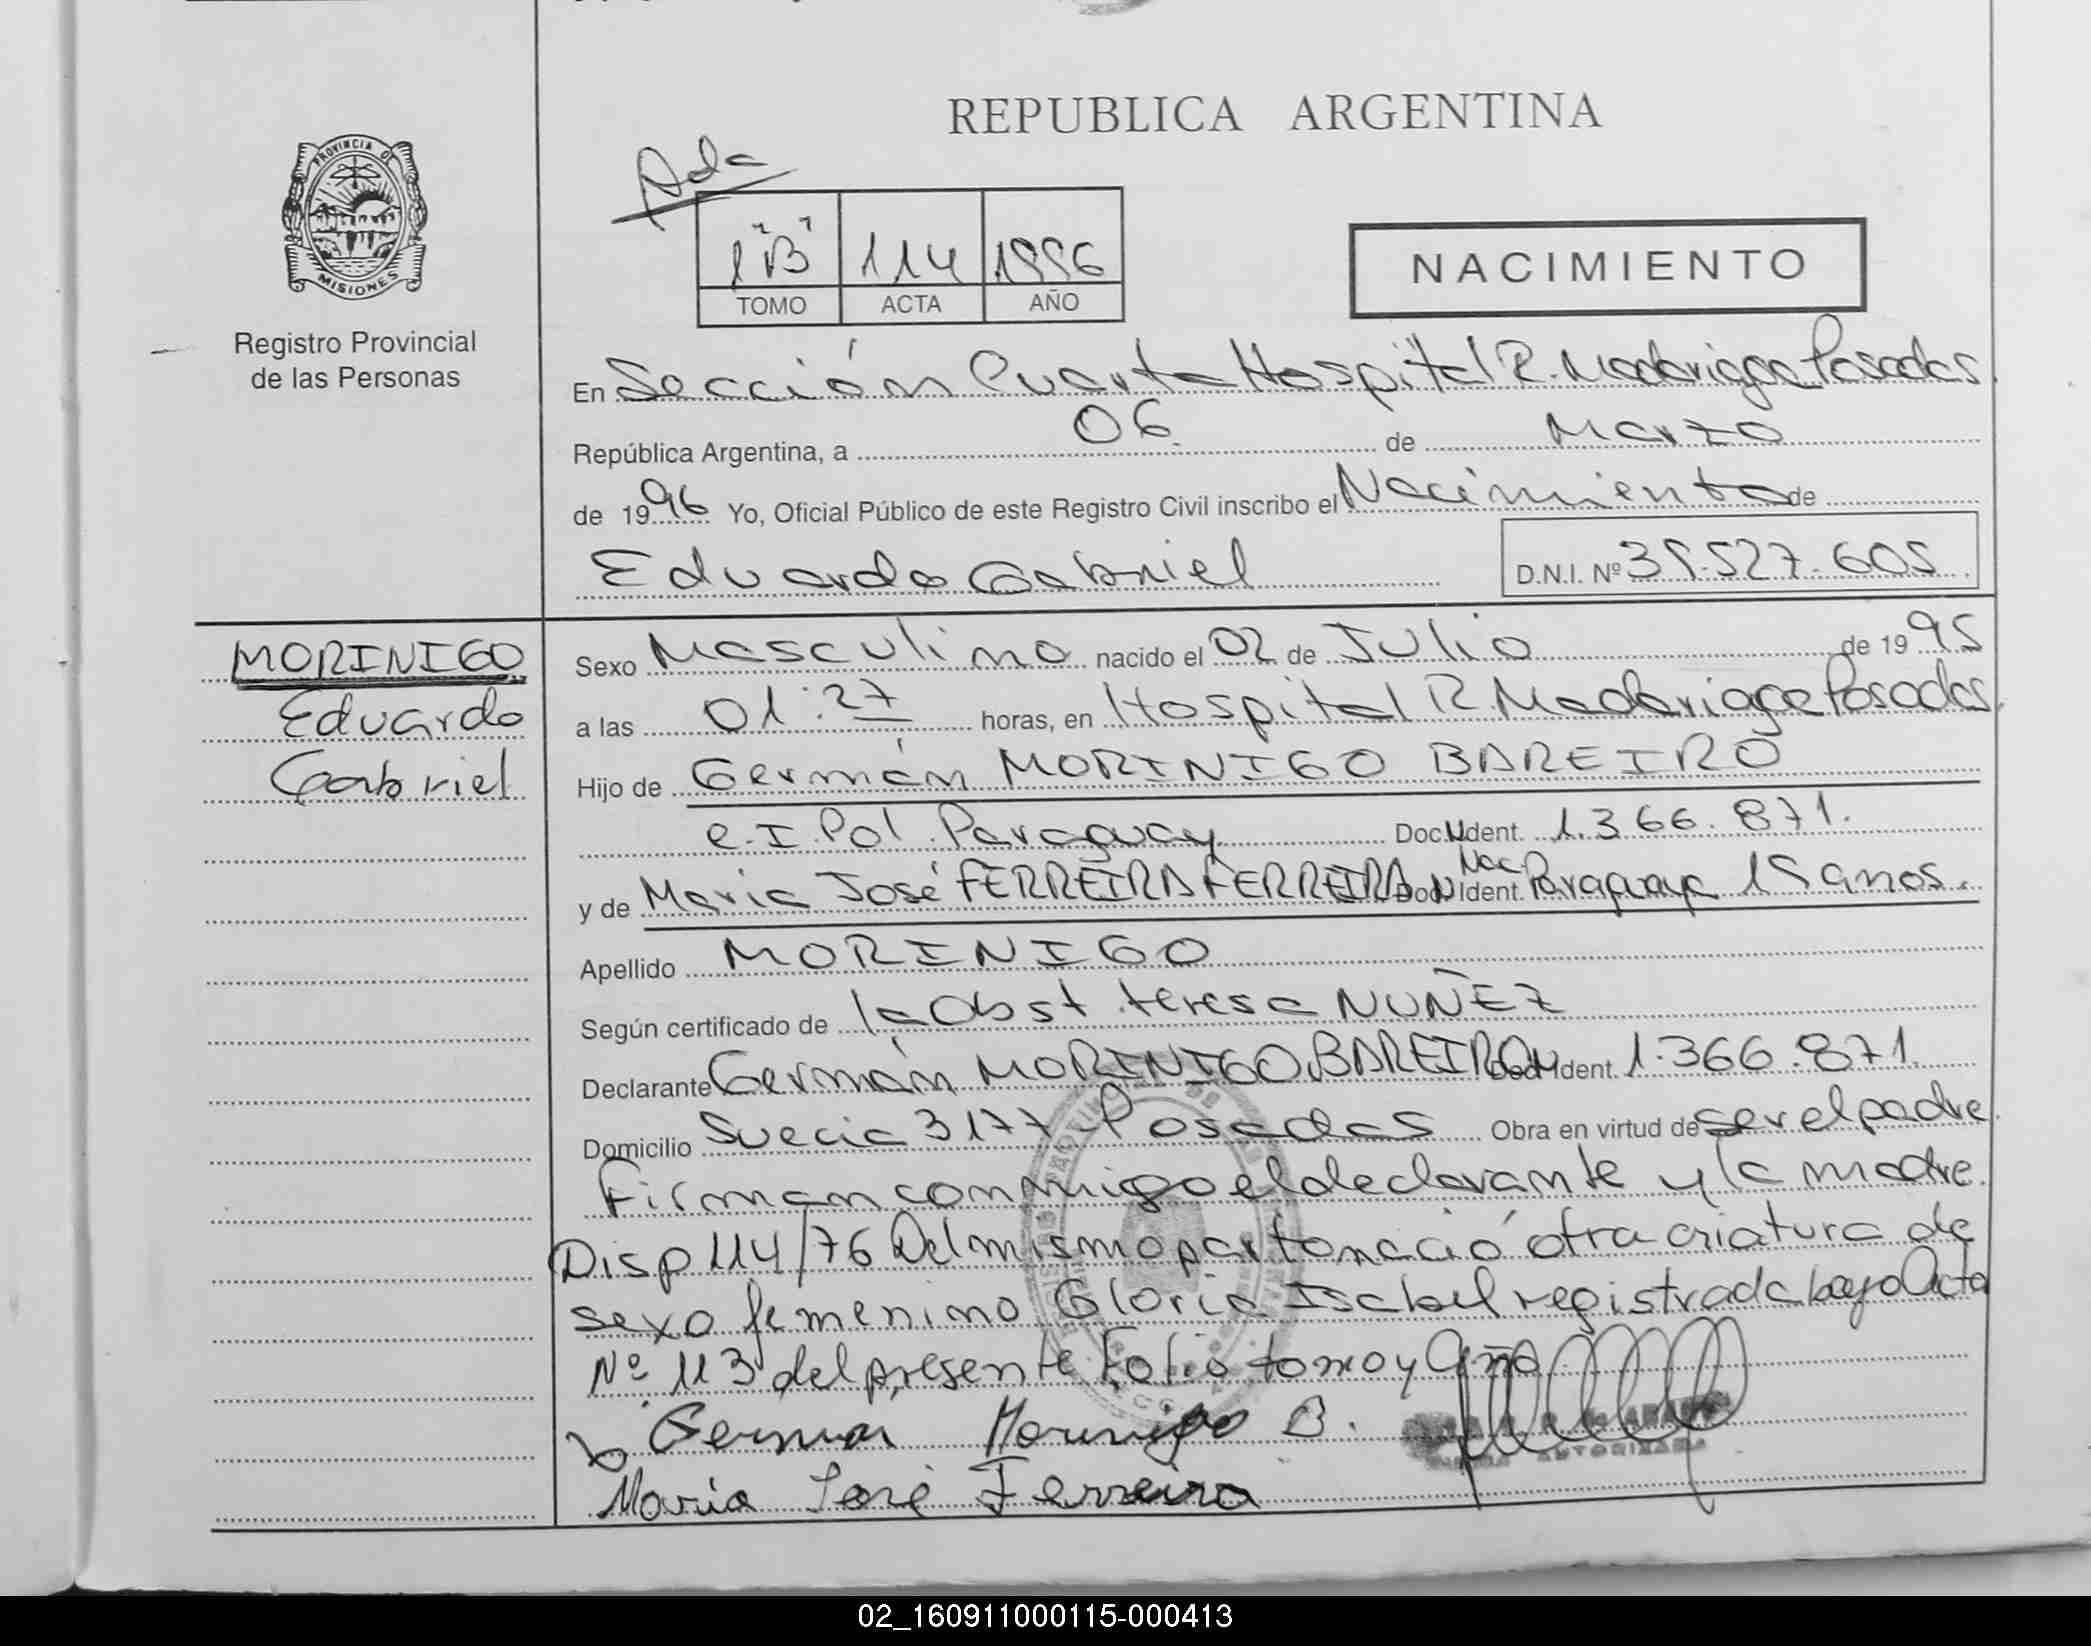 REPUBLICA ARGENTINA
Ada
PROVINCIA DE
MISIONES
Registro Provincial
de las Personas
1 "B" 114 1996
TOMO ACTA AÑO
NACIMIENTO
En Sección Cuarta Hospital R. Madariaga Posadas
República Argentina, a 06 de Marzo
de 1996 Yo, Oficial Público de este Registro Civil inscribo el Nacimiento de
Eduardo Gabriel D.N.I. Nº 39.527.605
MORINIGO
Eduardo
Gabriel
Sexo Masculino nacido el 02 de Julio de 1995
a las 01:27 horas, en Hospital R. Madariaga Posadas.
Hijo de Germán MORINIGO BAREIRO
e.I. Pol. Paraguay Doc. Ident. 1.366.871.
y de Maria José FERREIRA FERREIRA Doc. Ident. Nac. Paraguaya 19 anos.
Apellido MORINIGO
Según certificado de la Obst. teresa NUÑEZ
Declarante Germán MORINIGO BAREIRO Doc. Ident. 1.366.871.
Domicilio Suecia 3177 Posadas Obra en virtud de ser el padre.
Firman conmigo el declarante y la madre.
Disp 114/76 Del mismo parto nació otra criatura de
sexo femenino Gloria Isabel registrada bajo Acta
Nº 113 del presente Folio tomo y Año
German Morinigo B.
Maria José Ferreira
02_160911000115-000413